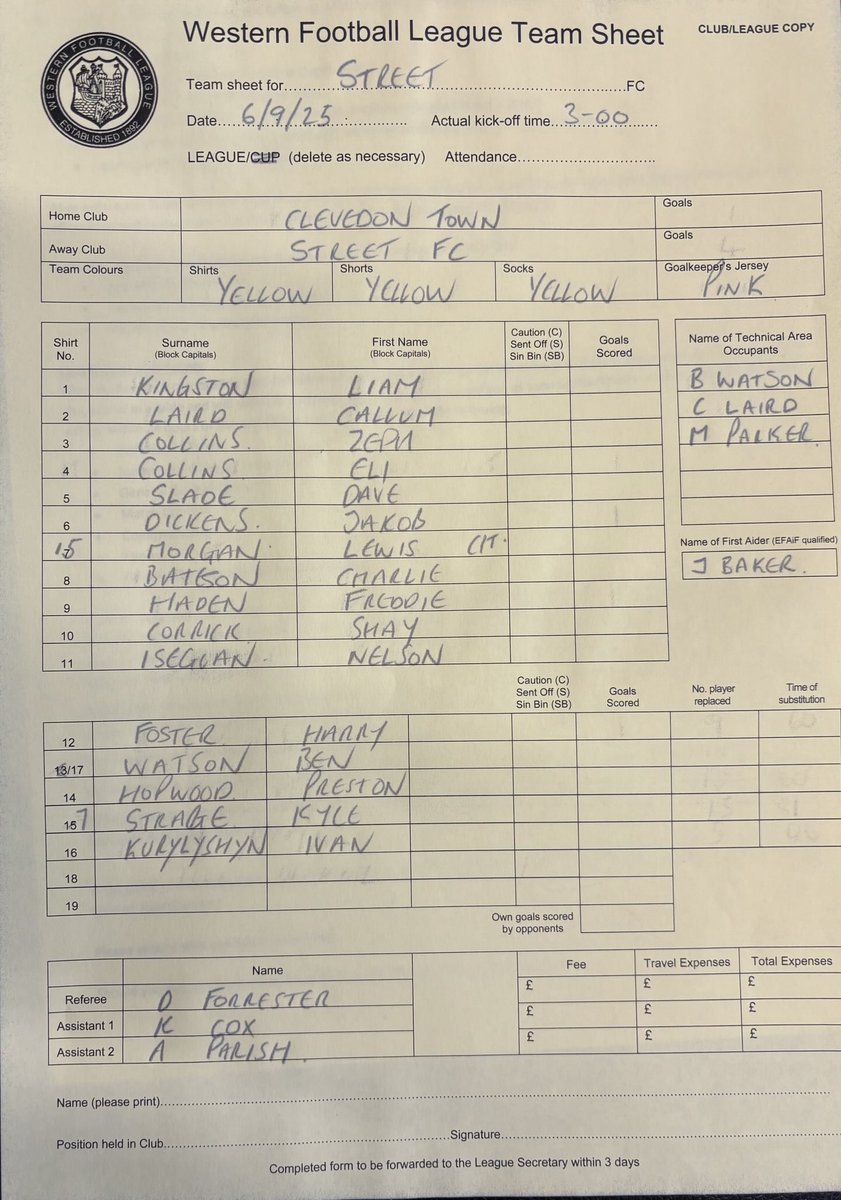 Western Football League Team Sheet
CLUB/LEAGUE COPY
WESTERN FOOTBALL LEAGUE
ESTABLISHED 1892
Team sheet for STREET FC
Date 6/9/25 Actual kick-off time 3-00
LEAGUE/CUP (delete as necessary) Attendance
Home Club CLEVEDON TOWN Goals
Away Club STREET FC Goals
Team Colours Shirts YELLOW Shorts YELLOW Socks YELLOW Goalkeeper's Jersey PINK
Shirt No. Surname (Block Capitals) First Name (Block Capitals) Caution (C) Sent Off (S) Sin Bin (SB) Goals Scored
1 KINGSTON LIAM
2 LAIRD CALLUM
3 COLLINS ZEPH
4 COLLINS ELI
5 SLADE DAVE
6 DICKENS. JAKOB
15 MORGAN LEWIS
8 BATESON CHARLIE
9 HADEN FREDDIE
10 CORRICK SHAY
11 NELSON
Name of Technical Area Occupants
B WATSON
C LAIRD
M PARKER
Name of First Aider (EFAiF qualified)
J BAKER.
Caution (C) Sent Off (S) Sin Bin (SB) Goals Scored No. player replaced Time of substitution
12 FOSTER HARRY
13/17 WATSON BEN
14 HOPWOOD PRESTON
7 KYLE
16 KURYLYSHYN IVAN
18
19
Own goals scored by opponents
Name Fee Travel Expenses Total Expenses
Referee D FORRESTER £ £ £
Assistant 1 K COX £ £ £
Assistant 2 A PARISH £ £ £
Name (please print)
Position held in Club Signature
Completed form to be forwarded to the League Secretary within 3 days